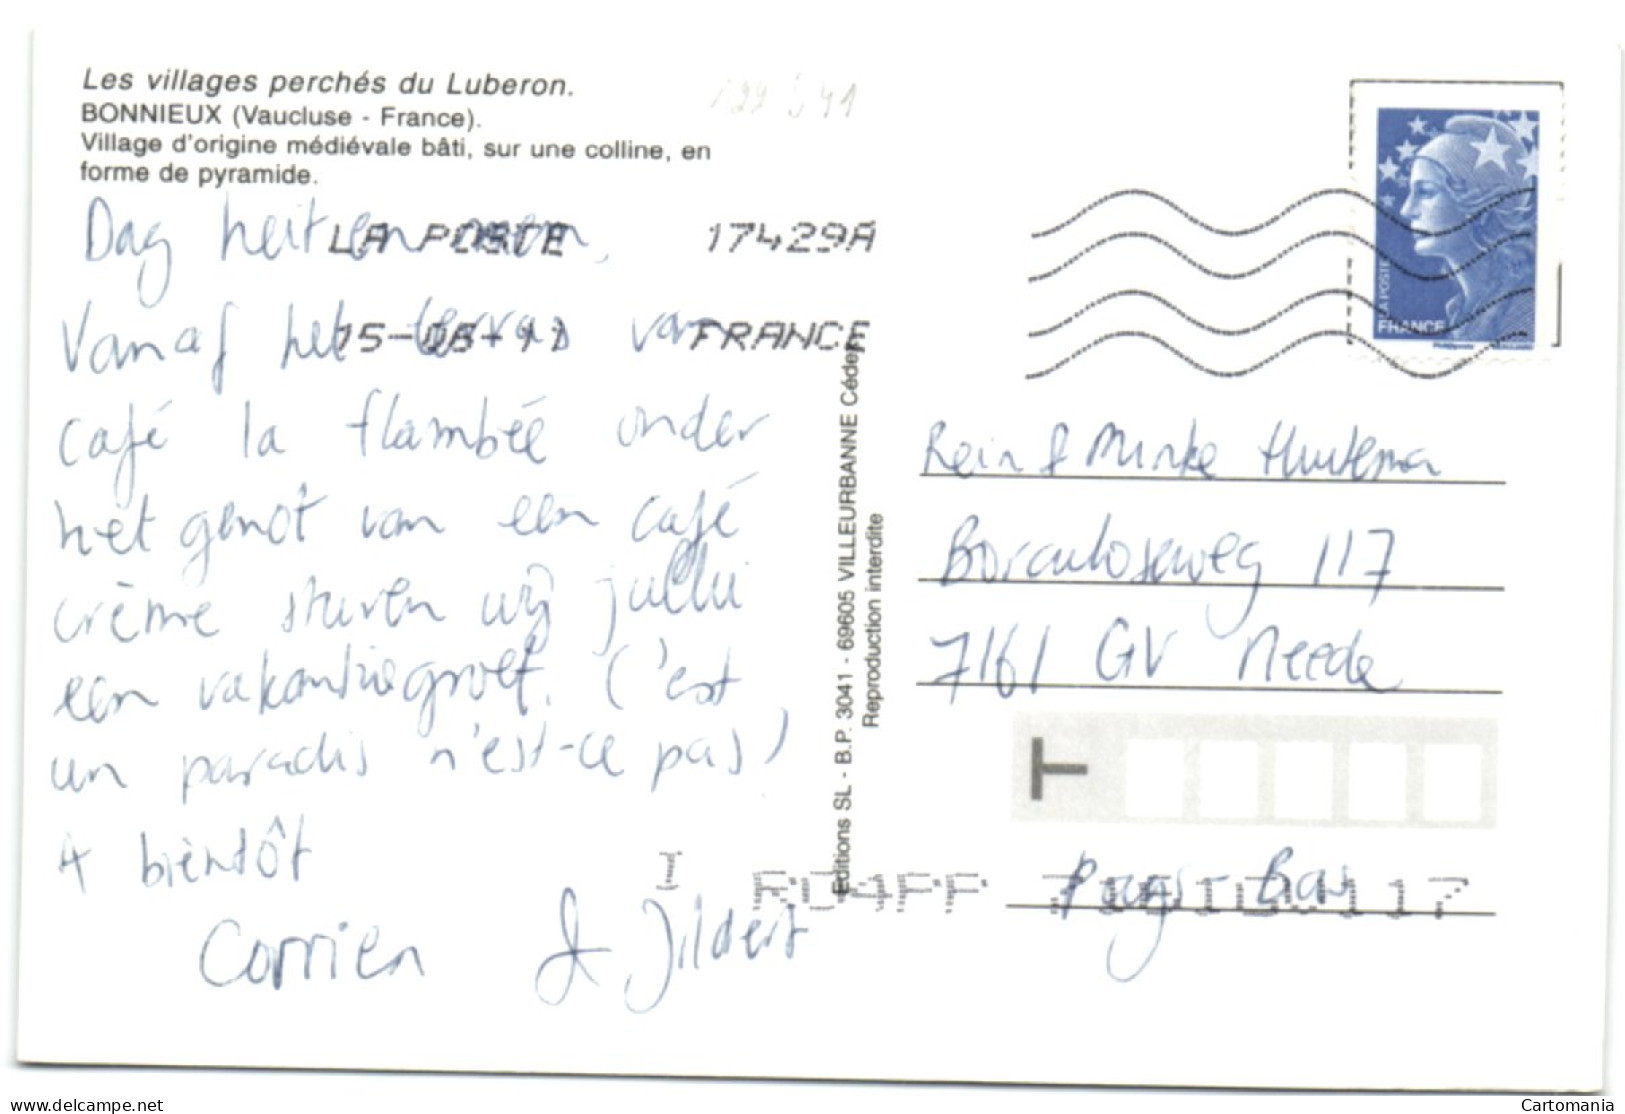 Les villages perchés du Luberon.
BONNIEUX (Vaucluse - France).
Village d'origine médiévale bâti, sur une colline, en
forme de pyramide.
Dag heit en mem,
Vanaf het terras van
café la flambée onder
het genot van een café
crème sturen wij jullui
een vakantiegroet. C'est
un paradis n'est-ce pas!
A bièntôt
Corrien & Jildert
LA POSTE 17429A
15-06-11 FRANCE
Editions SL - B.P. 3041 - 69605 VILLEURBANNE Cédex
Reproduction interdite
LA POSTE
FRANCE
Rein & Minke Huitema
Borculoseweg 117
7161 GV Neede
T
Pays-Bas
www.delcampe.net
Cartomania